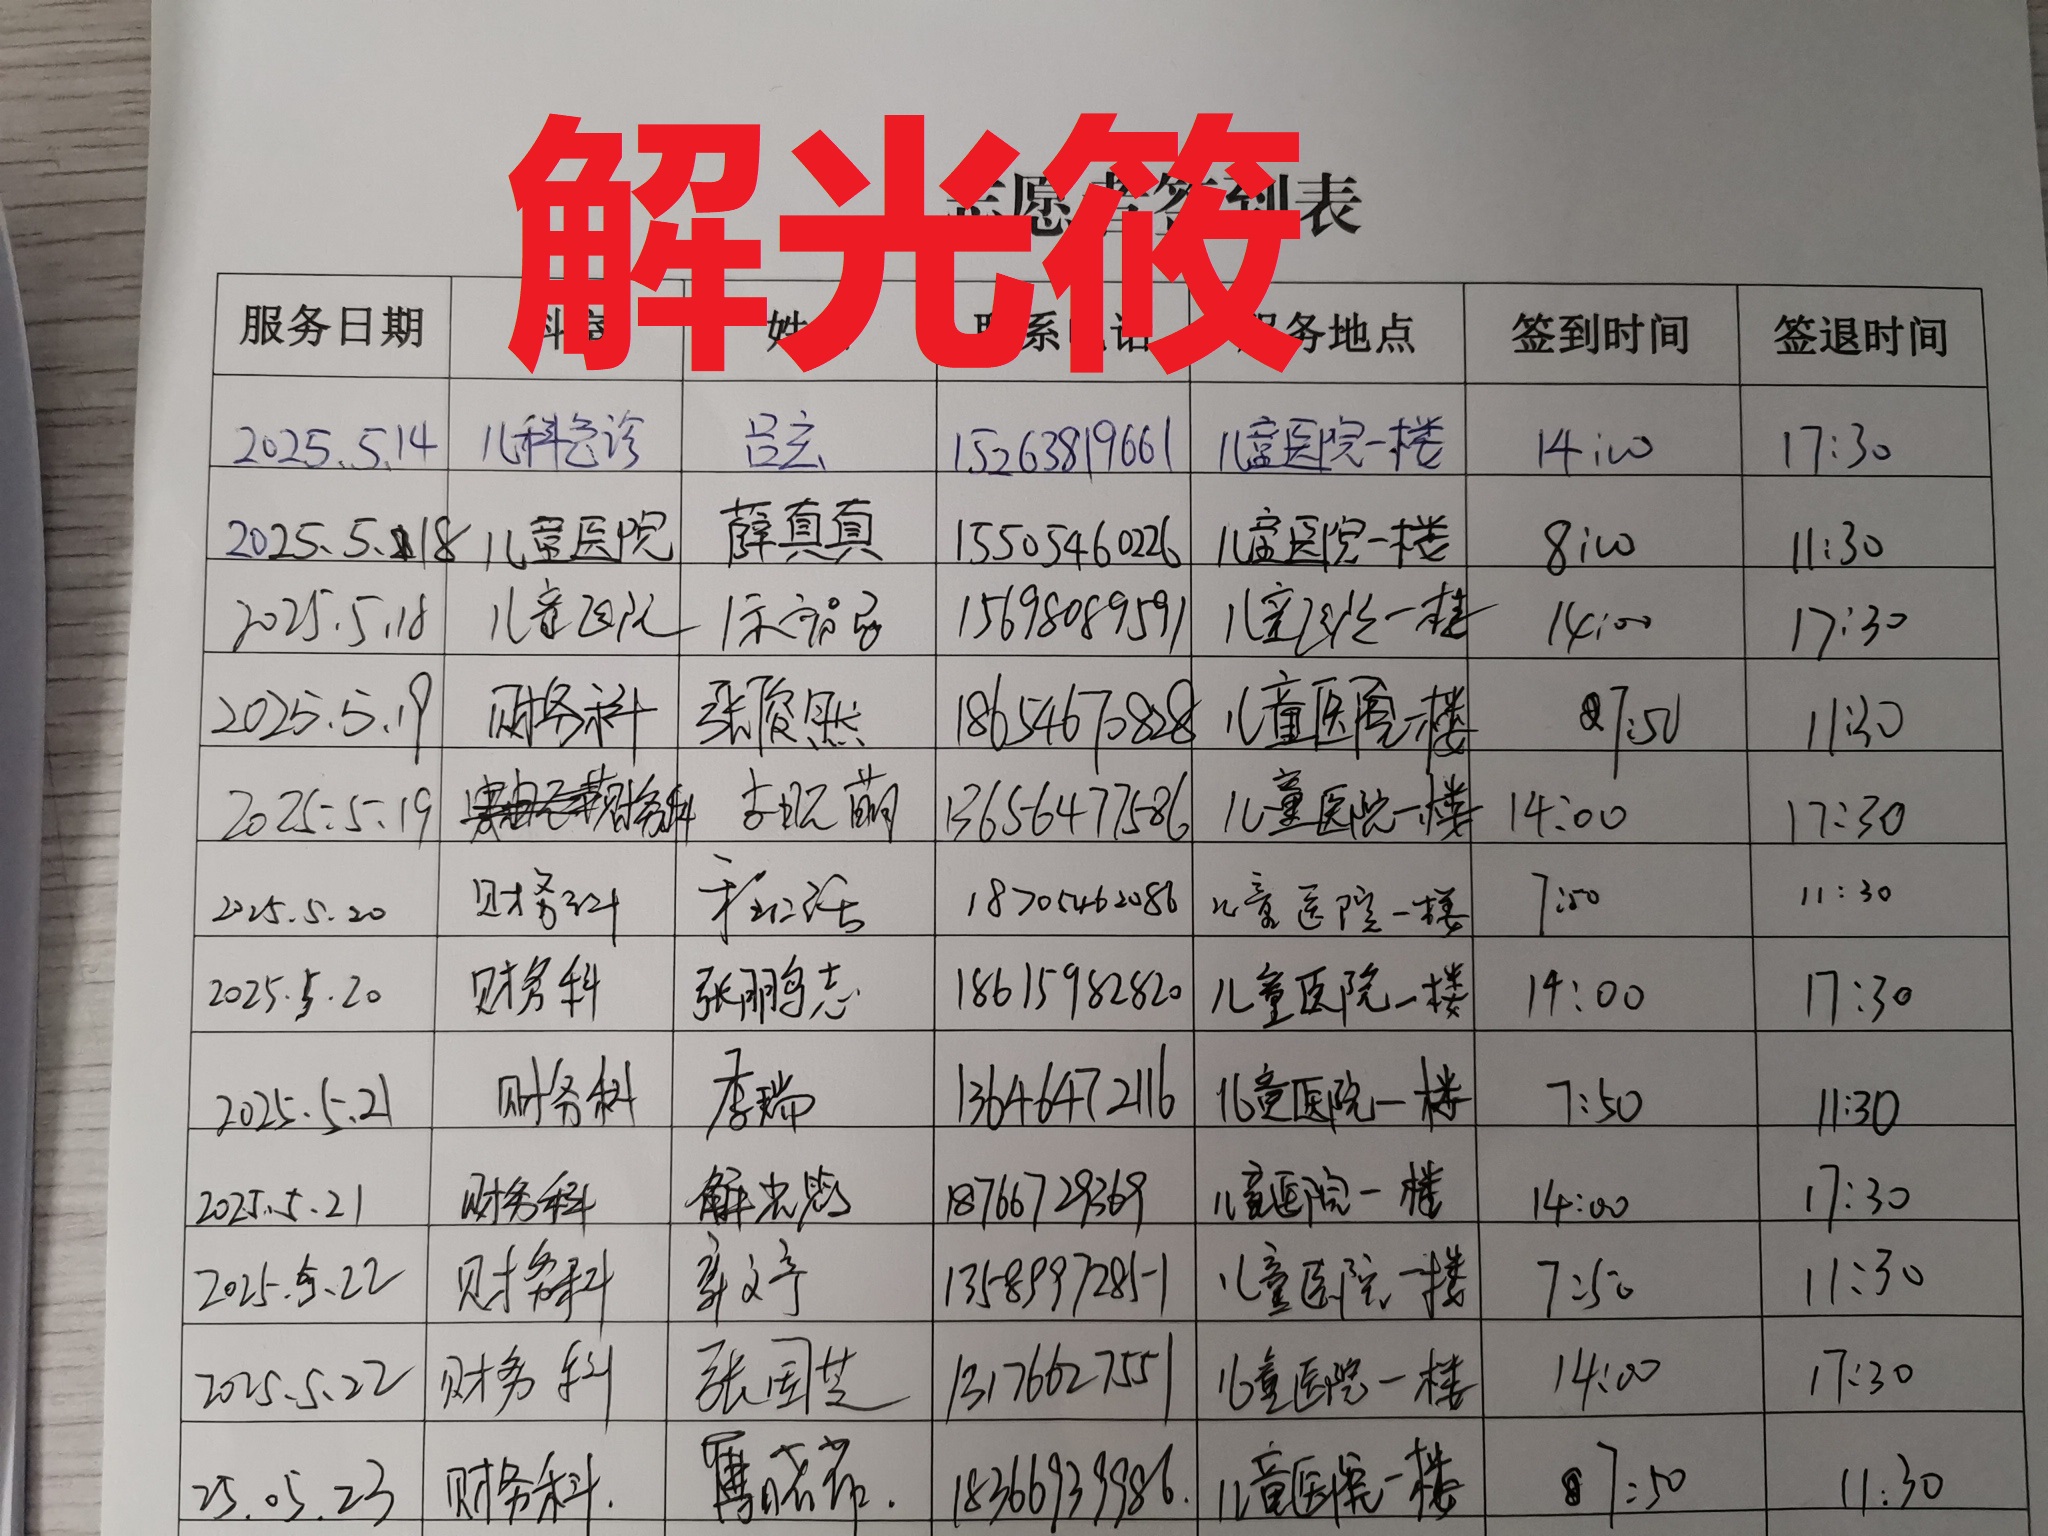 解光筱
志愿者签到表
服务日期 科室 姓 联系电话 服务地点 签到时间 签退时间
2025.5.14 儿科急诊 吕玄 15263819661 儿童医院一楼 14:00 17:30
2025.5.18 儿童医院 薛真真 15505460226 儿童医院一楼 8:00 11:30
2025.5.18 儿童医院 15698089591 儿童医院一楼 14:00 17:30
2025.5.19 财务科 张俊然 18654670828 儿童医院一楼 7:50 11:30
2025.5.19 财务科 萌 13656477586 儿童医院一楼 14:00 17:30
2025.5.20 财务科 18705462086 儿童医院一楼 7:50 11:30
2025.5.20 财务科 张鹏志 18615982820 儿童医院一楼 14:00 17:30
2025.5.21 财务科 李瑞 13646472116 儿童医院一楼 7:50 11:30
2025.5.21 财务科 解光筱 18766729369 儿童医院一楼 14:00 17:30
2025.5.22 财务科 13589972851 儿童医院一楼 7:50 11:30
2025.5.22 财务科 张国芝 13176627551 儿童医院一楼 14:00 17:30
25.05.23 财务科. 18366939986. 儿童医院一楼 7:50 11:30